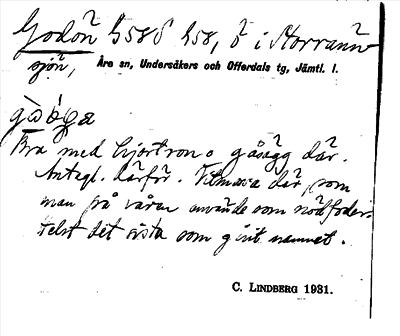 Godön 5586 h58, ö i Storrann-
sjön, Åre sn, Undersåkers och Offerdals tg, Jämtl. l.
Bra med hjortron o gåsägg där.
Antagl. därför. Vitmossa där, som
man på våren använde som nödfoder.
Helst det sista som givit namnet.
C. LINDBERG 1931.